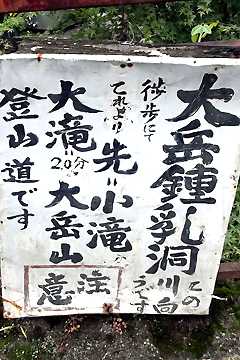 大岳鍾乳洞
この
川向
徒歩にて
です
これより先小滝
大滝20分大岳山
登山道です
注意